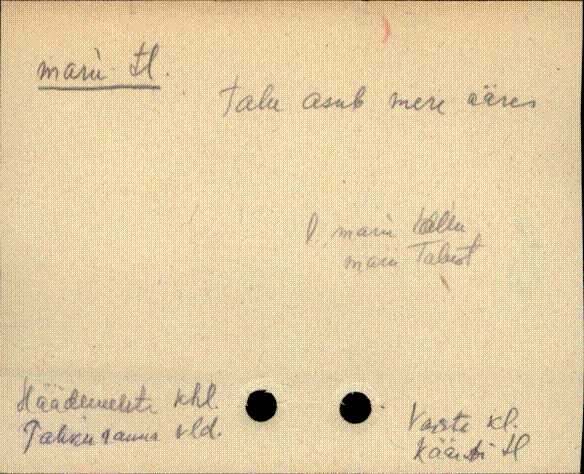 mari tl.
Talu asub mere ääres
l. mari talu
mari Talust
Häädemeeste khl.
Tahkuranna vld.
Võiste kl.
Kääri tl